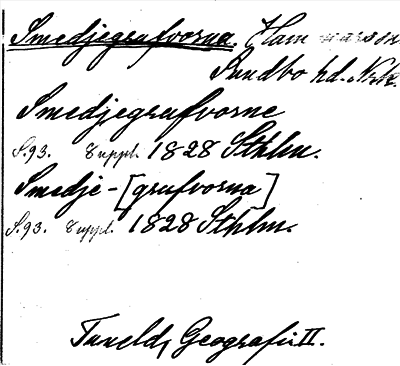 Smedjegrufvorna. Hammarson
Sundbo hd. Nrk.
Smedjegrufvorne
S. 93. Suppl. 1828 Sthlm.
Smedje-[grufvorna]
S. 93. Suppl. 1828 Sthlm.
Tuneld, Geografi II.